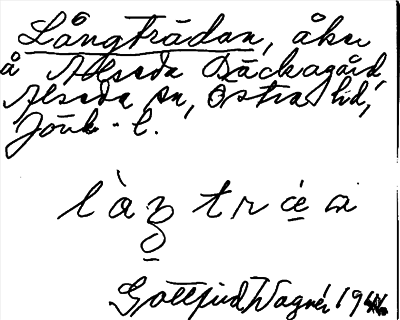 Långträdan, åker
å Alseda Bäckagård,
Alseda sn, Östra hd,
Jönk. l.
Gottfrid Wagnér 19